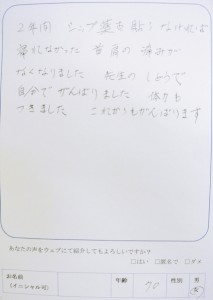 2年間 シップ薬を貼らなければ
寝れなかった 首肩の痛みが
なくなりました 先生の しどうで
自分で がんばりました 体力も
つきました これからもがんばります
あなたの声をウェブにて紹介してもよろしいですか?
□はい □匿名で □ダメ
お名前
(イニシャル可)
年齢
70
性別
男
女